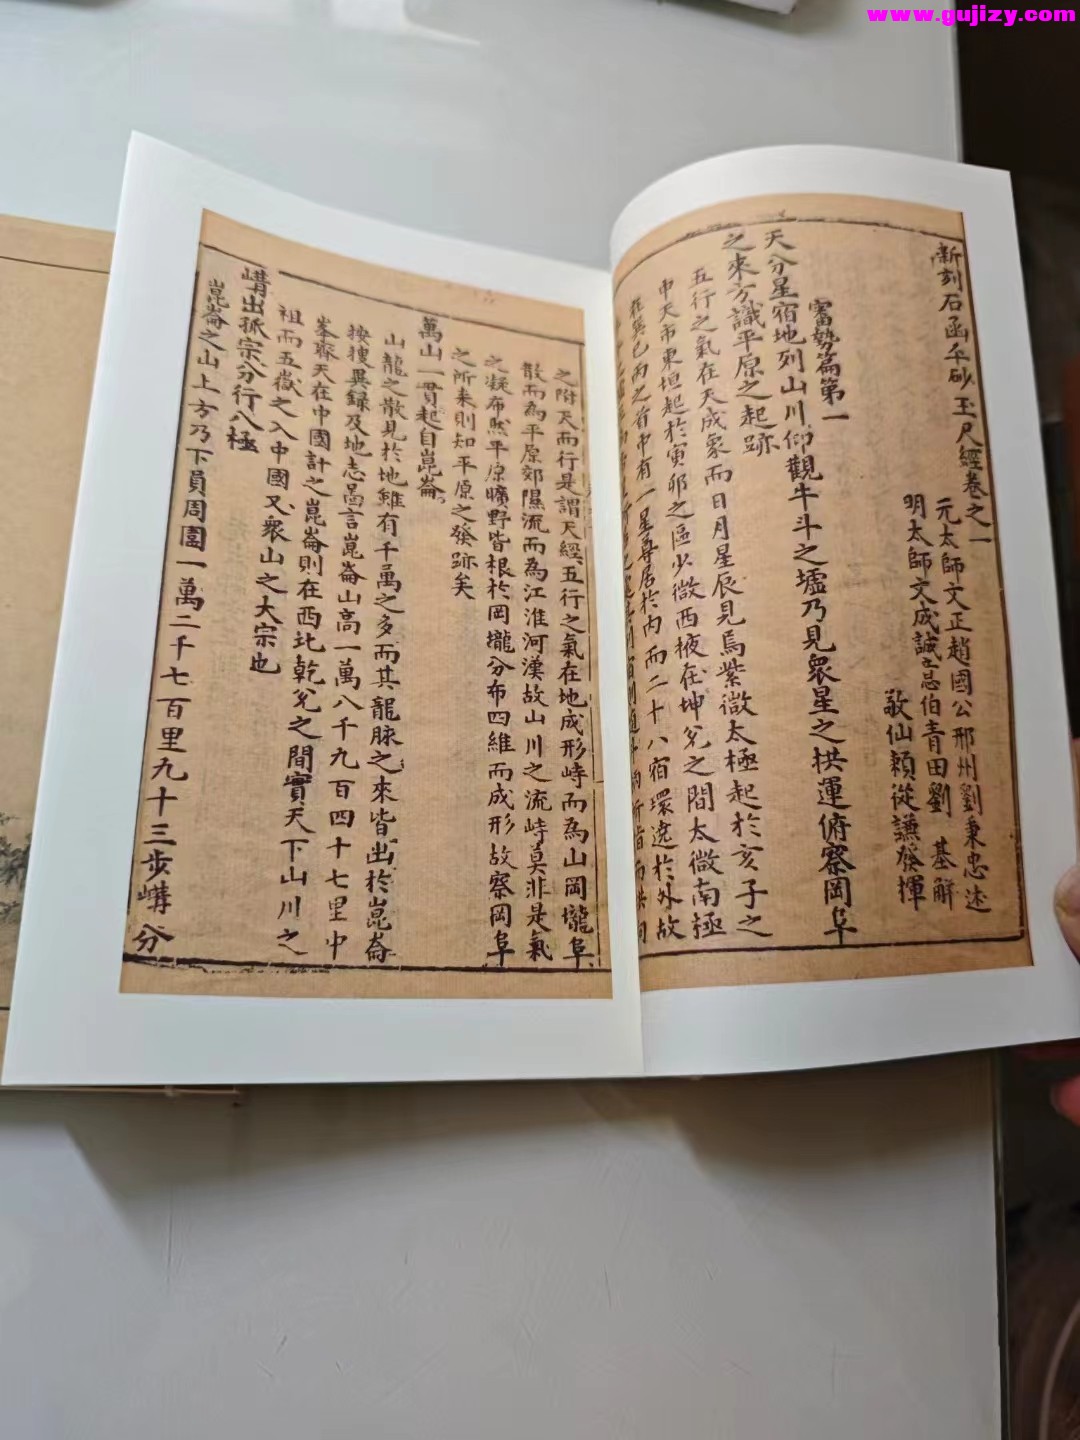 www.gujizy.com
新刻石函平砂玉尺經卷之一
元太師文正趙國公邢州劉秉忠述
明太師文成誠意伯青田劉　基解
敬仙賴從謙發揮
審勢篇第一
天分星宿地列山川仰觀牛斗之墟乃見衆星之拱運俯察岡阜
之來方識平原之起跡
五行之氣在天成象而日月星辰見焉紫微太極起於亥子之
中天市東垣起於寅卯之區少微西掖在坤兌之間太微南極
在巽巳丙之首中有一星尊居於內而二十八宿環遶於外故
之附天而行是謂天經五行之氣在地成形峙而為山岡壠阜
散而為平原郊隰流而為江淮河漢故山川之流峙莫非是氣
之凝布然平原曠野皆根於岡壠分布四維而成形故察岡阜
之所来則知平原之發跡矣
萬山一貫起自崑崙
山龍之散見於地雖有千萬之多而其龍脉之來皆出於崑崙
按搜異録及地志啚言崑崙山高一萬八千九百四十七里中
峯齊天在中國計之崑崙則在西北乾兌之間實天下山川之
祖而五嶽之入中國又衆山之大宗也
嵴出孤宗分行八極
崑崙之山上方乃下員周圍一萬二千七百里九十三步嵴分